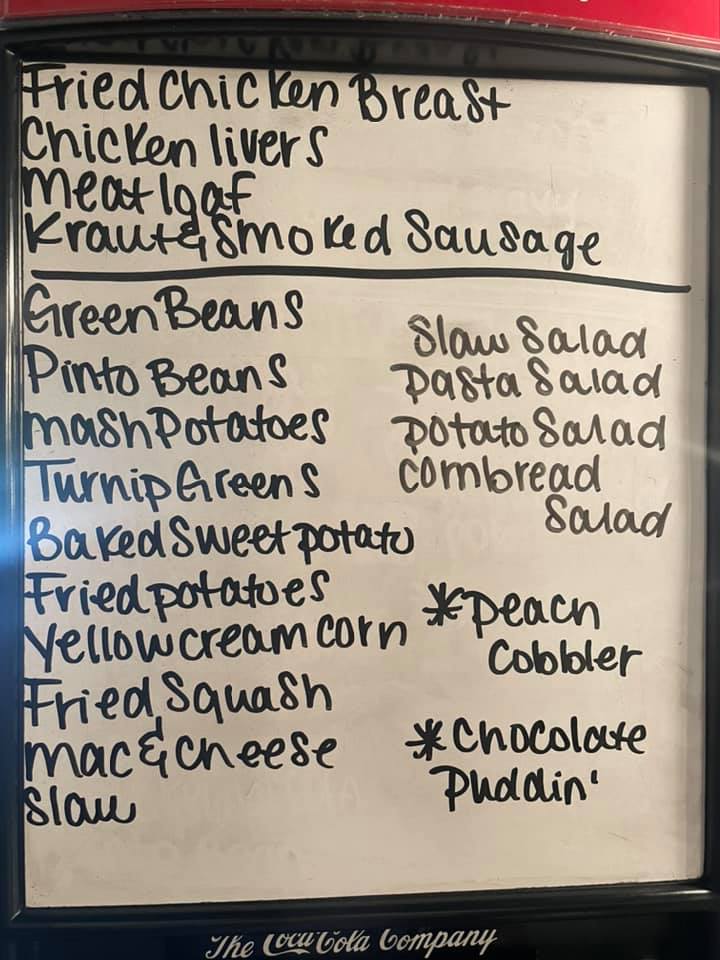 Fried Chicken Breast
Chicken livers
Meat loaf
Kraut & Smoked Sausage
Green Beans
Pinto Beans
Mash Potatoes
Turnip Greens
Baked Sweet potato
Fried potatoes
Yellow cream corn
Fried Squash
Mac & cheese
Slaw
Slaw Salad
Pasta Salad
Potato Salad
Cornbread
Salad
*Peach
Cobbler
*Chocolate
Puddin'
The Coca-Cola Company